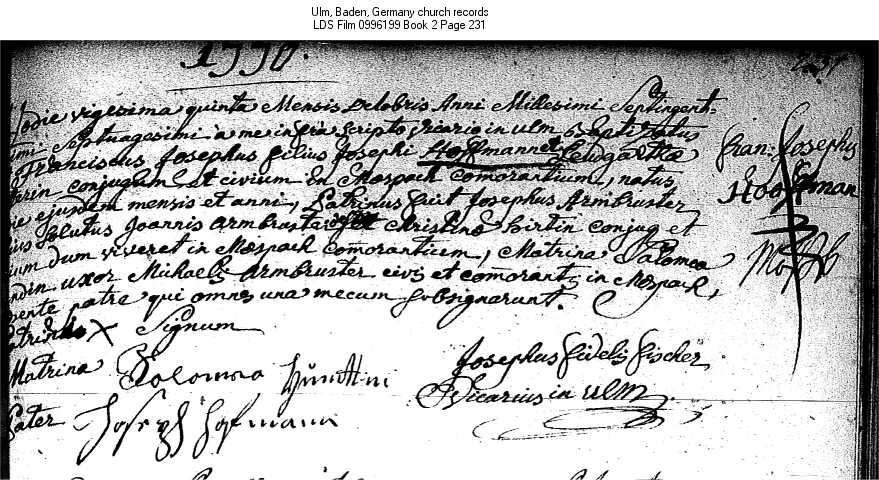 Ulm, Baden, Germany church records
LDS Film 0996199 Book 2 Page 231
1770.
231
Hodie vigesima quinta Mensis octobris Anni Millesimi Septingent-
imi Septuagesimi a me infra scripto vicario in ulm Baptizatus
Franciscus Josephus filius Josephi Hoffmann et Leudgarthæ
conjugum et civium in Mospach comorantium, natus
die ejusdem mensis et anni, Patrinus fuit Josephus Armbruster
solutus Joannis Armbruster et Christinæ hirtin conjug et
ium dum viveret in Mospach comorantium, Matrina Salomea
uxor Michaelis Armbruster civis et comorantis in Mospach,
sente patre qui omnes una mecum subsignarunt.
Fran: Josephus
Hooffman
Patrinus X Signum
Matrina Solomea
Pater Joseph Hofmann
Josephus Fidelis Fischer
Vicarius in ulm